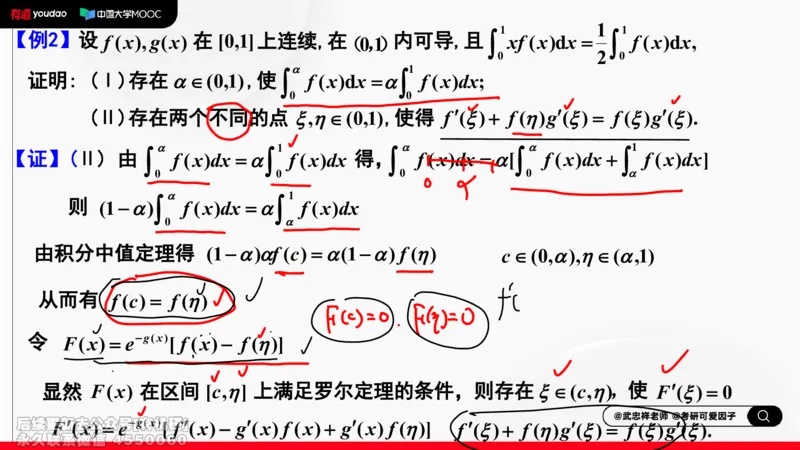 有道 youdao 中国大学MOOC
【例2】设 f(x),g(x) 在 [0,1] 上连续,在 (0,1) 内可导,且 ∫₀¹ xf(x)dx = 1/2 ∫₀¹ f(x)dx,
证明:(Ⅰ)存在 α∈(0,1),使 ∫₀^α f(x)dx = α∫₀¹ f(x)dx;
(Ⅱ)存在两个不同的点 ξ,η∈(0,1),使得 f′(ξ)+f(η)g′(ξ)=f(ξ)g′(ξ).
【证】(Ⅱ) 由 ∫₀^α f(x)dx = α∫₀¹ f(x)dx 得, ∫₀^α f(x)dx = α[∫₀^α f(x)dx + ∫_α¹ f(x)dx]
0 α 1
则 (1−α)∫₀^α f(x)dx = α∫_α¹ f(x)dx
由积分中值定理得 (1−α)αf(c) = α(1−α)f(η) c∈(0,α),η∈(α,1)
从而有 f(c) = f(η) F(c)=0. F(η)=0 f′(
令 F(x) = e^{−g(x)}[f(x) − f(η)]
显然 F(x) 在区间 [c,η] 上满足罗尔定理的条件，则存在 ξ∈(c,η), 使 F′(ξ) = 0
@武忠祥老师 @考研可爱因子
F′(x) = e^{−g(x)}[f′(x) − g′(x)f(x) + g′(x)f(η)] f′(ξ)+f(η)g′(ξ)=f(ξ)g′(ξ).